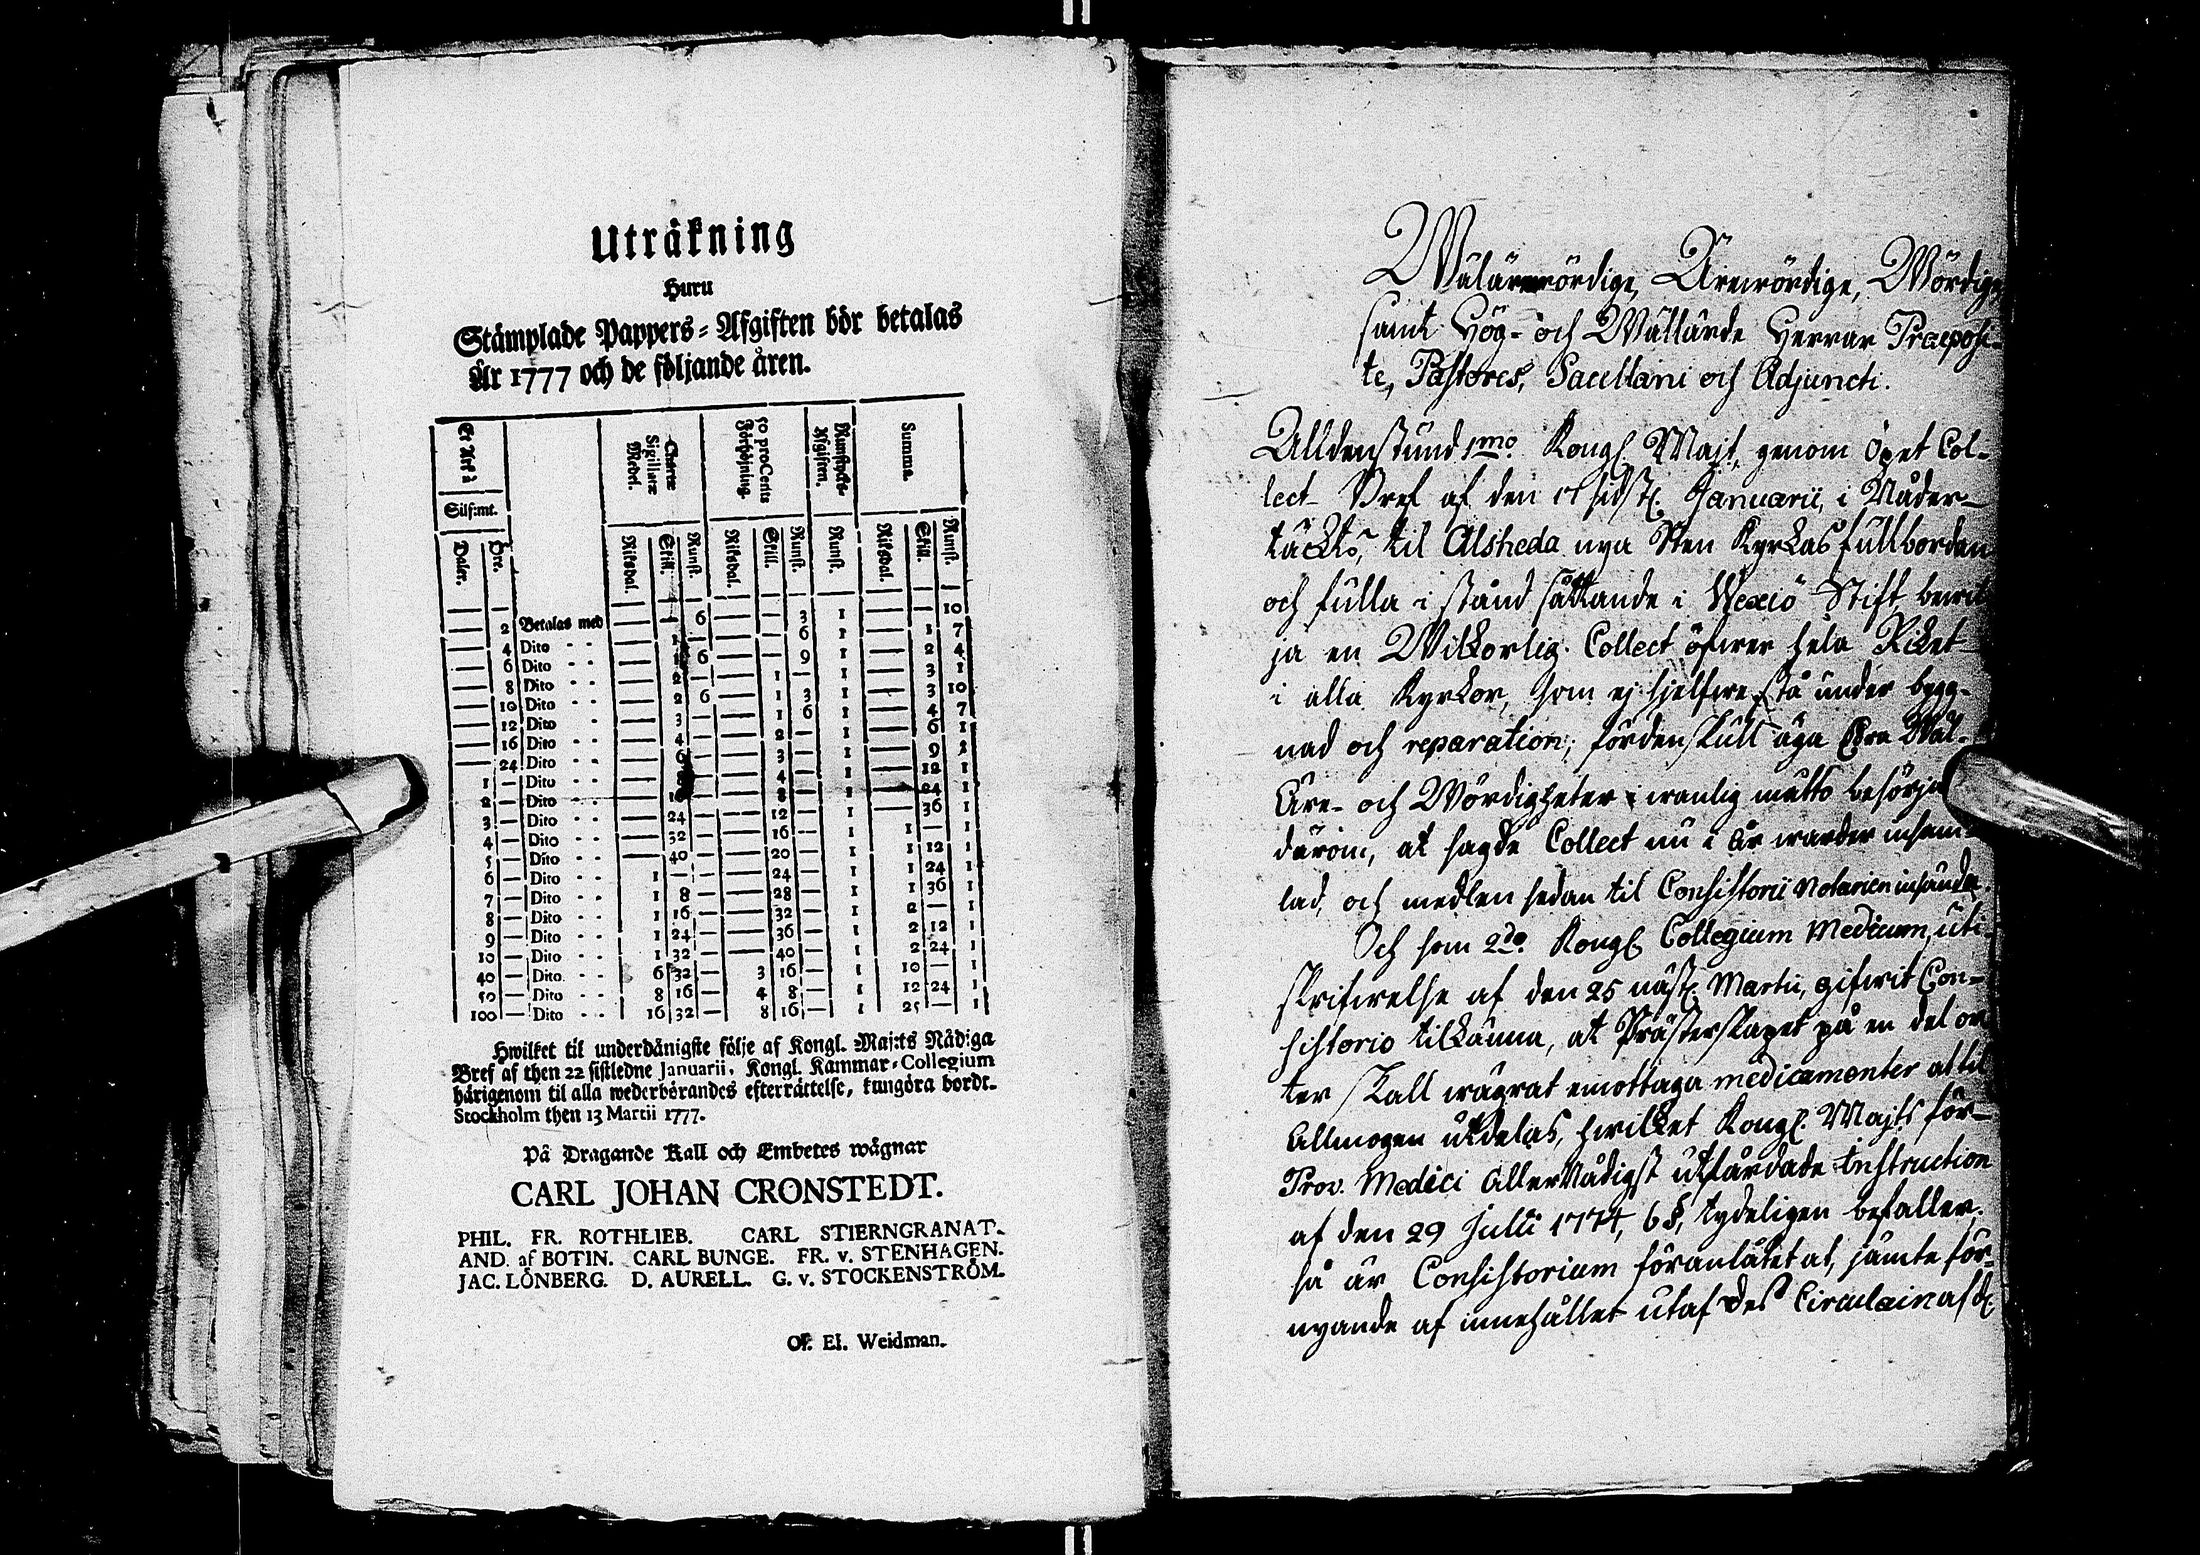 Uträkning
Huru
Stämplade Pappers-Afgiften bör betalas
År 1777 och de följande åren.
Et Ark à | Chartæ Sigillatæ Medel. | 50 proCents Förhöjning. | Runstycks-Afgiften. | Summa.
Silf:mt.
Daler. | Öre. | Riksdal. | Skill. | Runst. | Riksdal. | Skill. | Runst. | Runst. | Riksdal. | Skill. | Runst.
— 2 Betalas med — — 6 — — 3 1 — — 10
— 4 Dito - - — 1 — — — 6 1 — 1 7
— 6 Dito - - — 1 6 — — 9 1 — 2 4
— 8 Dito - - — 2 — — 1 — 1 — 3 1
— 10 Dito - - — 2 6 — 1 3 1 — 3 10
— 12 Dito - - — 3 — — 1 6 1 — 4 7
— 16 Dito - - — 4 — — 2 — 1 — 6 1
— 24 Dito - - — 6 — — 3 — 1 — 9 1
1 — Dito - - — — — 4 — 1 — 12 1
2 — Dito - - — 16 — — 8 — 1 — 24 1
3 — Dito - - — 24 — — 12 — 1 — 36 1
4 — Dito - - — 32 — — 16 — 1 1 — 1
5 — Dito - - — 40 — — 20 — 1 1 12 1
6 — Dito - - 1 — — — 24 — 1 1 24 1
7 — Dito - - 1 8 — — 28 — 1 1 36 1
8 — Dito - - 1 16 — — 32 — 1 2 — 1
9 — Dito - - 1 24 — — 36 — 1 2 12 1
10 — Dito - - 1 32 — — 40 — 1 2 24 1
40 — Dito - - 6 32 — 3 16 — 1 10 — 1
50 — Dito - - 8 16 — 4 8 — 1 12 24 1
100 — Dito - - 16 32 — 8 16 — 1 25 — 1
Hwilket til underdånigste följe af Kongl. Maj:ts Nådiga
Bref af then 22 sistledne Januarii, Kongl. Kammar-Collegium
härigenom til alla wederbörandes efterrättelse, kungöra bordt.
Stockholm then 13 Martii 1777.
På Dragande Kall och Embetes wägnar
CARL JOHAN CRONSTEDT.
PHIL. FR. ROTHLIEB. CARL STIERNGRANAT.
AND. af BOTIN. CARL BUNGE. FR. v. STENHAGEN.
JAC. LÖNBERG. D. AURELL. G. v. STOCKENSTRÖM.
Of. El. Weidman.
Wälärewördige, Ärewördige, Wördige
samt Hög- och Wällärde Herrar Præposi-
te, Pastores, Sacellani och Adjuncti.
Alldenstund 1mo Kongl. Majt, genom öpet Col-
lect-Bref af den sidstl. Januarii, i Nåder
täckts, til Alsheda nya Sten Kyrkas fullbordan
och fulla i stånd sättande i Wexiö Stift, bewil
ja en Wilkorlig Collect öfwer hela Riket
i alla Kyrkor, som ej sjelfwe stå under bygg-
nad och reparation; fördenskull äga Era Wäl-
Äre- och Wördigheter i wanlig måtto besörja
därom, at sagde Collect nu i år warder insam-
lad, och medlen sedan til Consistorii Notarien insända.
Och som 2do Kongl. Collegium Medicum, uti
skrifwelse af den 25 näst. Martii, gifwit Con-
sistorio tilkänna, at Prästerskapet på en del or
ter skall wägrat emottaga medicamenter at til
Allmogen utdelas, hwilket Kongl. Majts för
Prov. Medici AllerNådigst utfärdade Instruction
af den 29 Julii 1774, 6 §, tydeligen befaller.
så är Consistorium föranlåtet at, jämte för-
nyande af innehållet utaf Des Circulair af d.